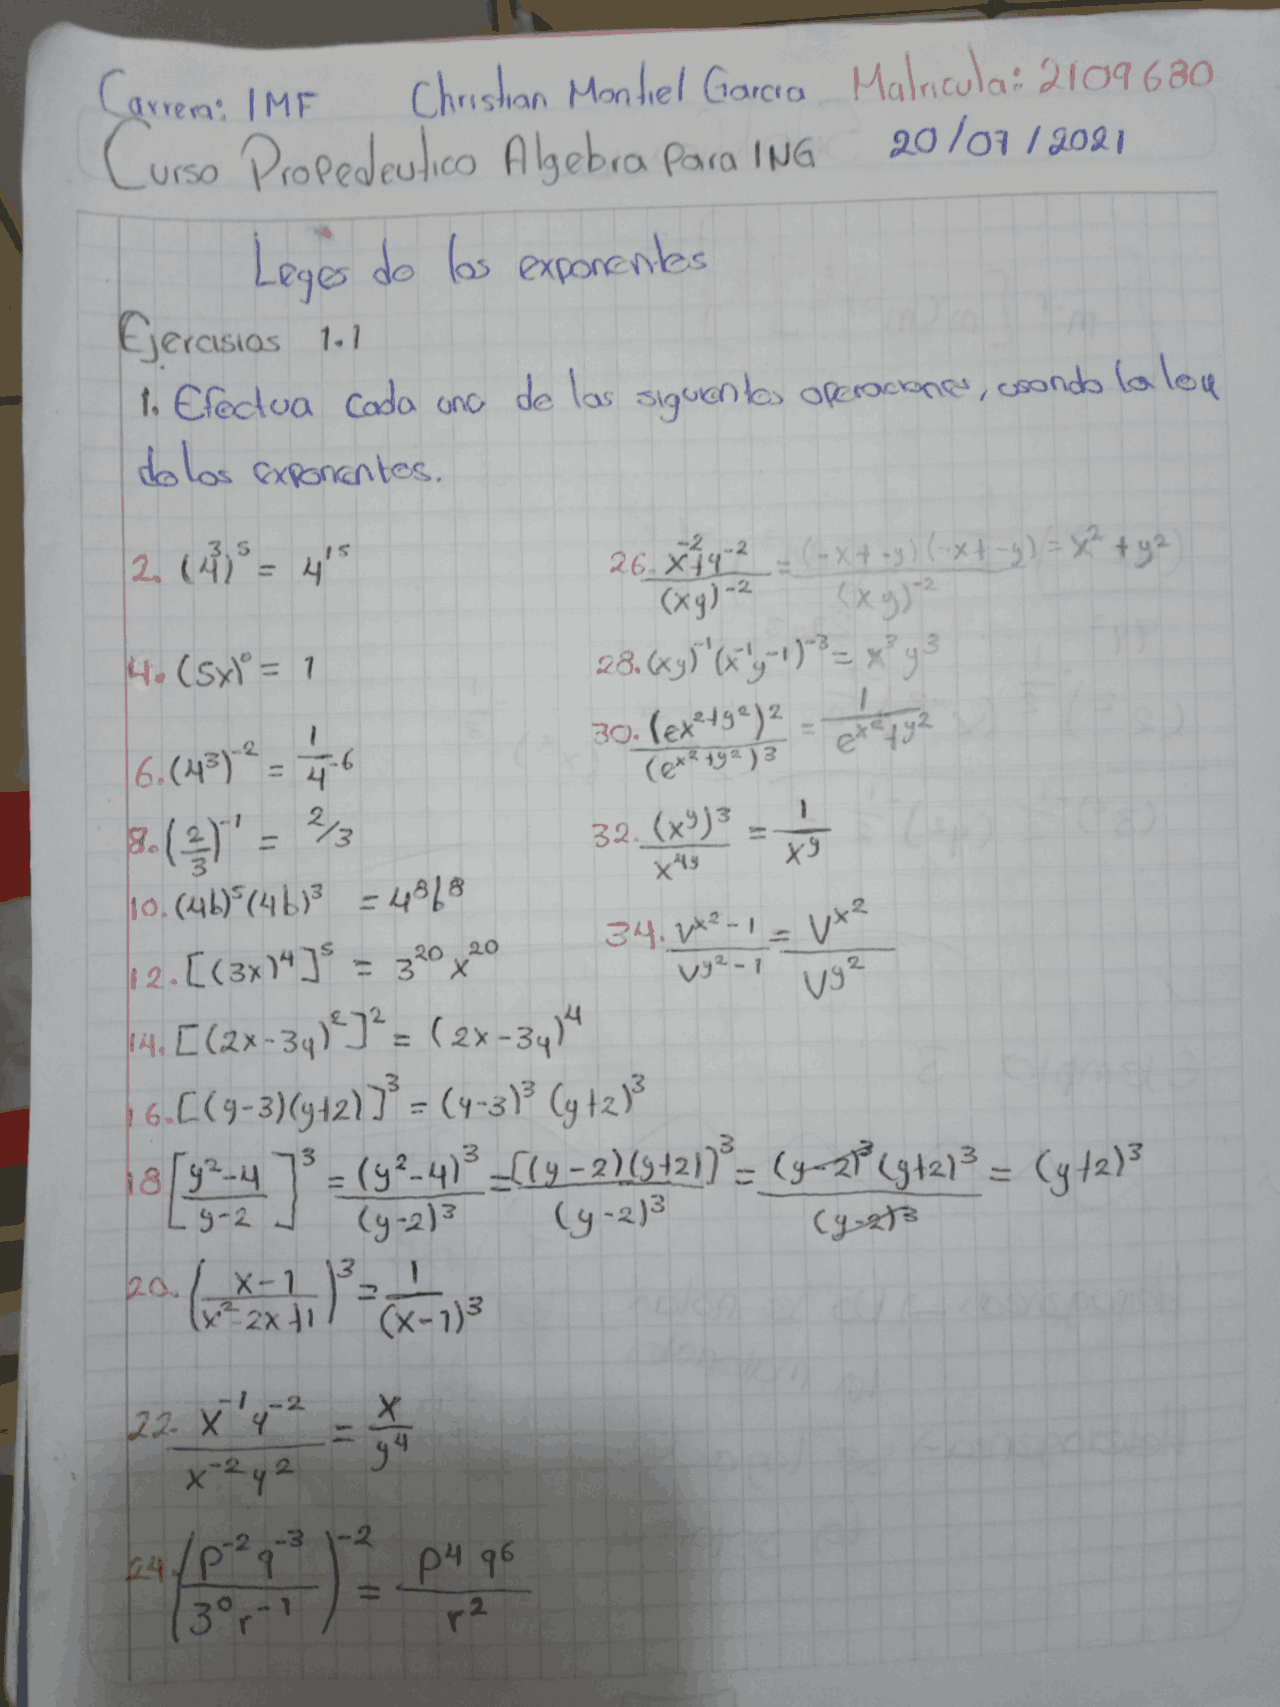 Carrera: IMF Christian Montiel Garcia Matricula: 2109680
Curso Propedeutico Algebra Para ING 20/07/2021
Leyes de los exponentes
Ejercisios 1.1
1. Efectua cada una de las siguientes operaciones, usando la ley
de los exponentes.
2. (4^3)^5 = 4^15
4. (5x)^0 = 1
6. (4^3)^-2 = 1/4^-6
8. (2/3)^-1 = 2/3
10. (4b)^5 (4b)^3 = 4^8 b^8
12. [(3x)^4]^5 = 3^20 x^20
14. [(2x-3y)^2]^2 = (2x-3y)^4
16. [(y-3)(y+2)]^3 = (y-3)^3 (y+2)^3
18 [y^2-4 / y-2]^3 = (y^2-4)^3 / (y-2)^3 = [(y-2)(y+2)]^3 / (y-2)^3 = (y-2)^3 (y+2)^3 / (y-2)^3 = (y+2)^3
20. (x-1 / x^2-2x+1)^3 = 1 / (x-1)^3
22. x^-1 y^-2 / x^-2 y^2 = x / y^4
24. (p^-2 q^-3 / 3^0 r^-1)^-2 = p^4 q^6 / r^2
26. x^-2 + y^-2 / (xy)^-2 = (-x+-y)(-x+-y) / (xy)^-2 = x^2 + y^2
28. (xy)^-1 (x^-1 y^-1)^-3 = x^3 y^3
30. (e^x^2+y^2)^2 / (e^x^2+y^2)^3 = 1 / e^x^2+y^2
32. (x^y)^3 / x^4y = 1 / x^y
34. V^x^2-1 / V^y^2-1 = V^x^2 / V^y^2